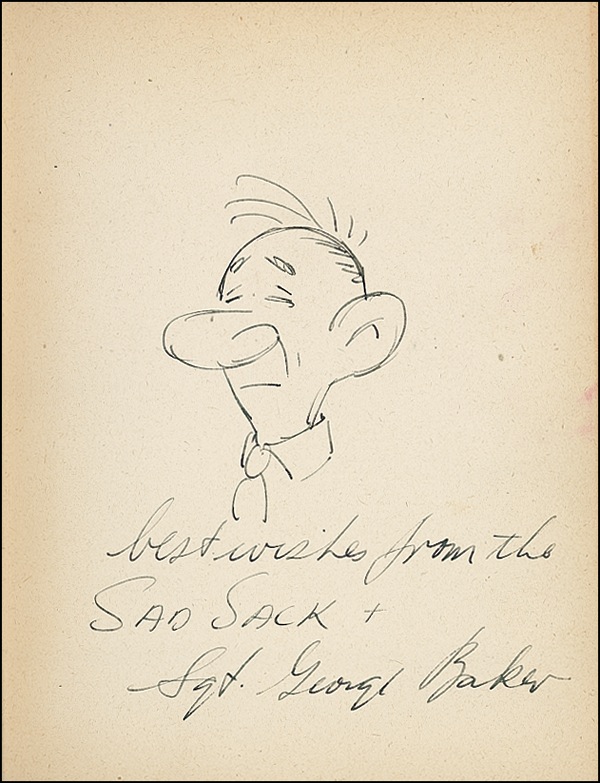 best wishes from the
SAD SACK +
Sgt. George Baker